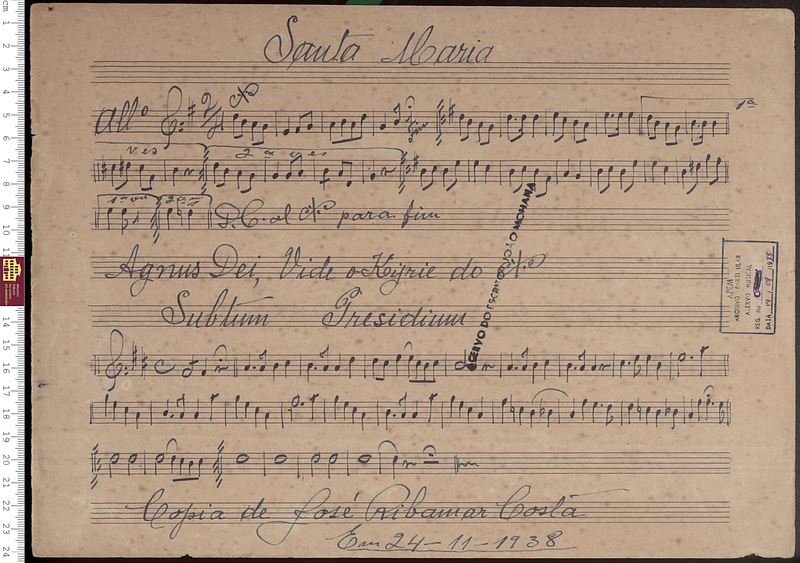 Santa Maria
Allº 2/4
1ª
ves 2ª ves
1ª ves 2ª
D.C. al para fim
Agnus Dei, Vide o Kyrie do
Subtum Presidium
fim
Copia de José Ribamar Costa
Em 24-11-1938
ACERVO DO ESCRITOR JOÃO MOHANA
APEM
ARQUIVO PARTICULAR
ACERVO MUSICAL
REG. Nº
DATA
cm 1 2 3 4 5 6 7 8 9 10 11 14 15 16 17 18 19 20 21 22 23 24